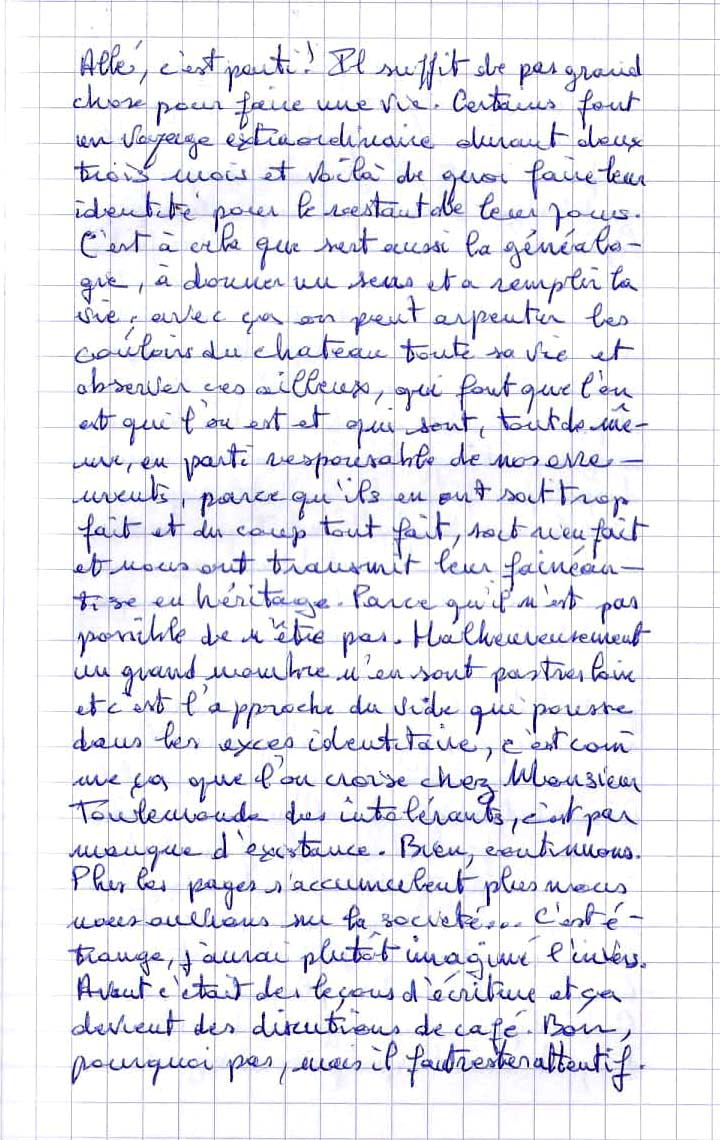 Allé, c'est parti! Il suffit de pas grand
chose pour faire une vie. Certains font
un voyage extraordinaire durant deux
trois mois et voilà de quoi faire leur
identité pour le restant de leur jours.
C'est à cela que sert aussi la généalo-
gie, à donner un sens et a remplir la
vie, avec ça on peut arpenter les
couloirs du chateau toute sa vie et
observer ces ailleux, qui font que l'on
est qui l'on est et qui sont, tout de mê-
me, en parti responsable de nos erre-
ments, parce qu'ils en ont soit trop
fait et du coup tout fait, soit rien fait
et nous ont transmit leur fainéan-
tise en héritage. Parce qu'il n'est pas
possible de n'être pas. Malheureusement
un grand nombre n'en sont pas tres loin
et c'est l'approche du vide qui pousse
dans les exces identitaire, c'est com
me ça que l'on croise chez Monsieur
Toulemonde des intolérants, c'est par
manque d'existance. Bien, continuons.
Plus les pages s'accumulent plus nous
nous ouvrons sur la société... C'est é-
trange, j'aurai plutôt imaginé l'invers.
Avant c'était des leçons d'écriture et ça
devient des discutions de café. Bon,
pourquoi pas, mais il faut rester attentif.